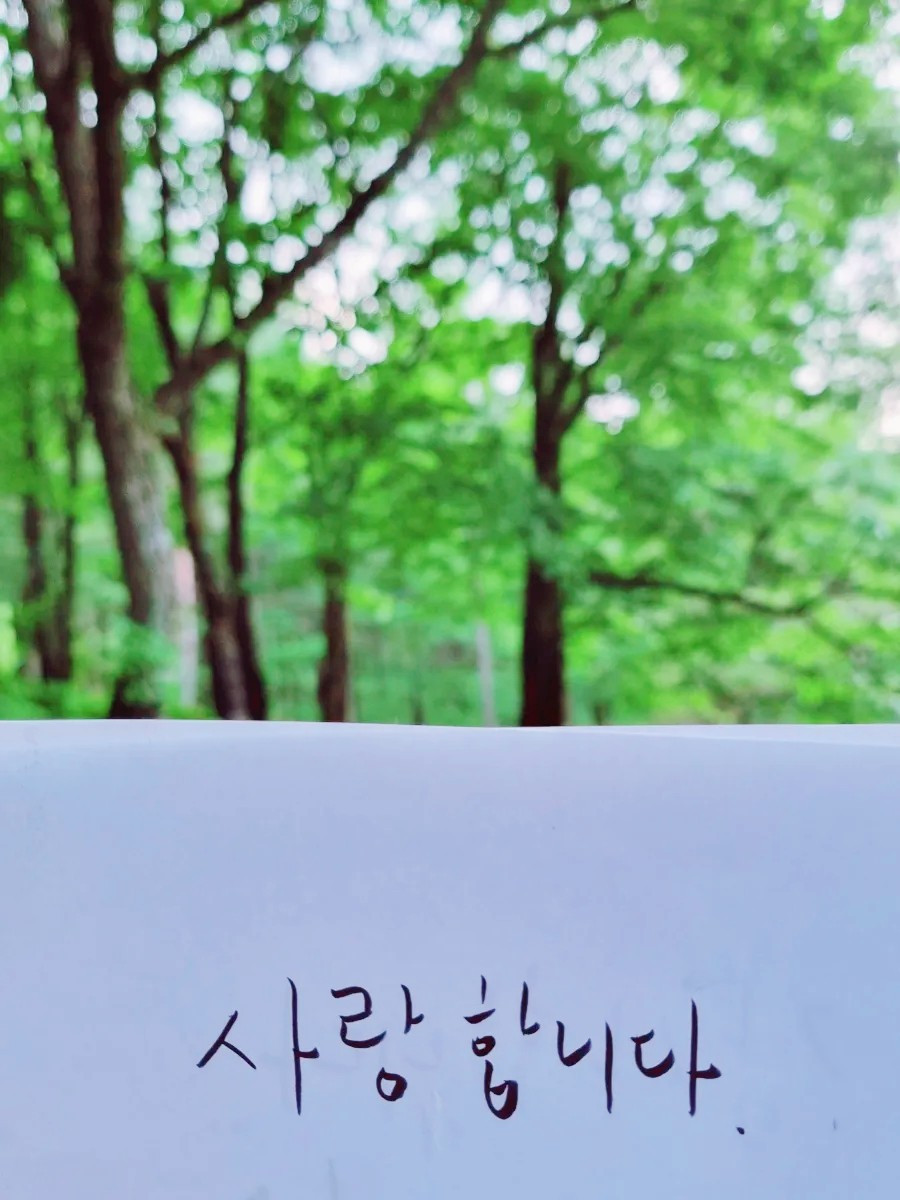 사랑합니다.